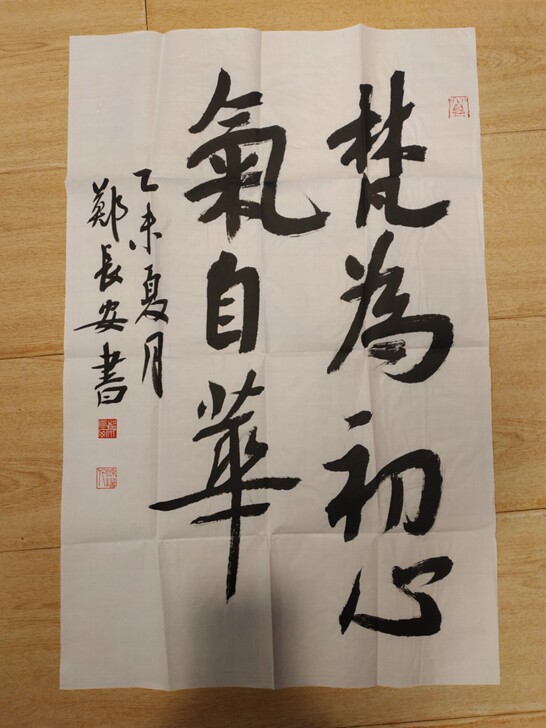 梵為初心
氣自華
乙未夏月
鄭長安書